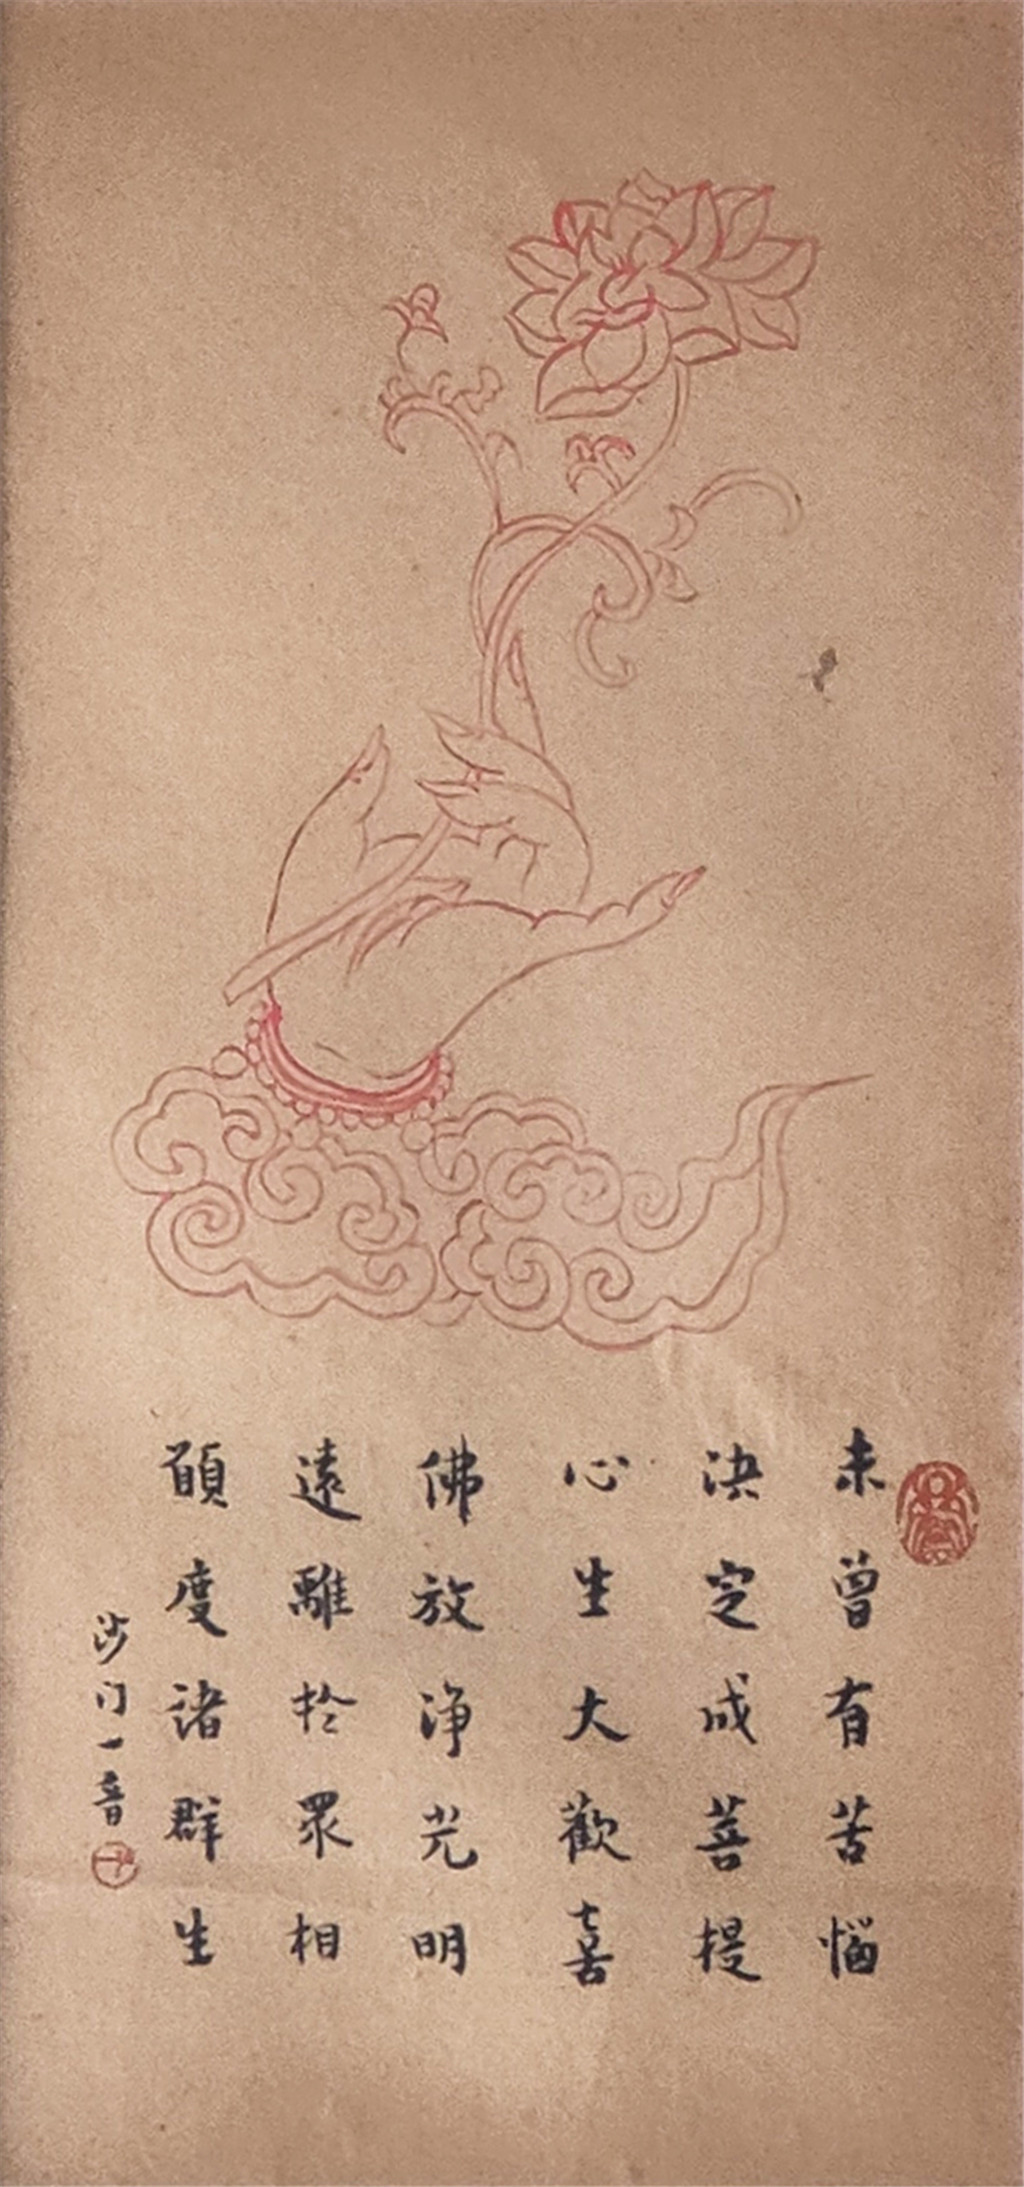 未曾有苦惱
決定成菩提
心生大歡喜
佛放淨光明
遠離於眾相
願度諸群生
沙门一音